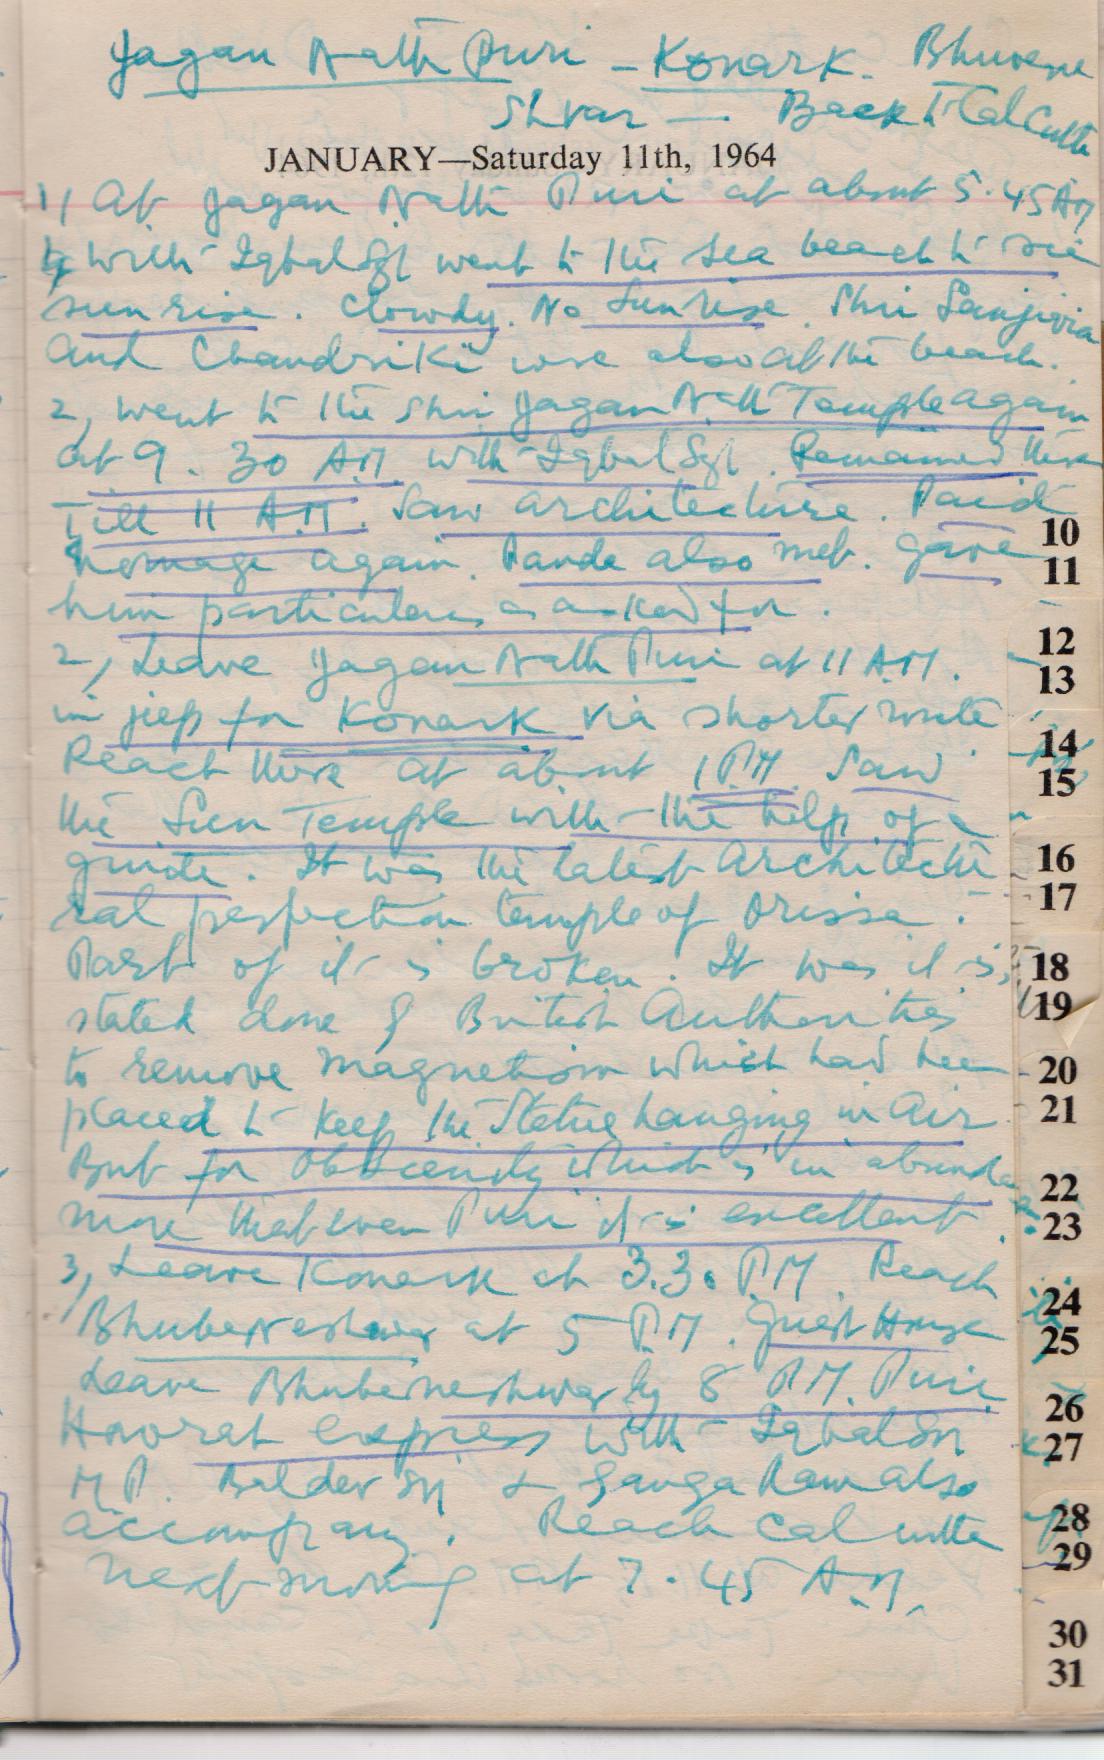 Jagan Nath Puri - Konark - Bhuvene
Shvar - Back to Calcutta
JANUARY—Saturday 11th, 1964
1, At Jagan Nath Puri at about 5.45 AM
with Iqbal Sgh went to the sea beach to see
sun rise. Cloudy. No Sunrise. Shri
and Chandriki were also at the beach.
2, went to the Shri Jagan Nath Temple again
at 9.30 AM with Iqbal Sgh. Remained there
Till 11 A.M. Saw architecture. Paid
homage again. Panda also met. gave
him particulars as asked for.
2, Leave Jagan Nath Puri at 11 A.M.
in jeep for Konark via shorter route
Reach there at about 1 PM Saw
the Sun Temple with the help of a
guide. It was the latest Architectu
ral perfection temple of Orissa.
Part of it is broken. It was it is,
stated done by British Authorities
to remove magnetism which had been
placed to keep the Statue hanging in Air
But for obscenity which is in abunda
more that even Puri it is excellent.
3, Leave Konark at 3.30 P.M. Reach
Bhubeneshwar at 5 P.M. Guest House
Leave Bhubeneshwar by 8 P.M. Puri
Howrah express with Iqbal Sgh
M.P. Baldev Sgh & Ganga Ram also
accompany. Reach Calcutta
next morning at 7.45 A.M.
10
11
12
13
14
15
16
17
18
19
20
21
22
23
24
25
26
27
28
29
30
31